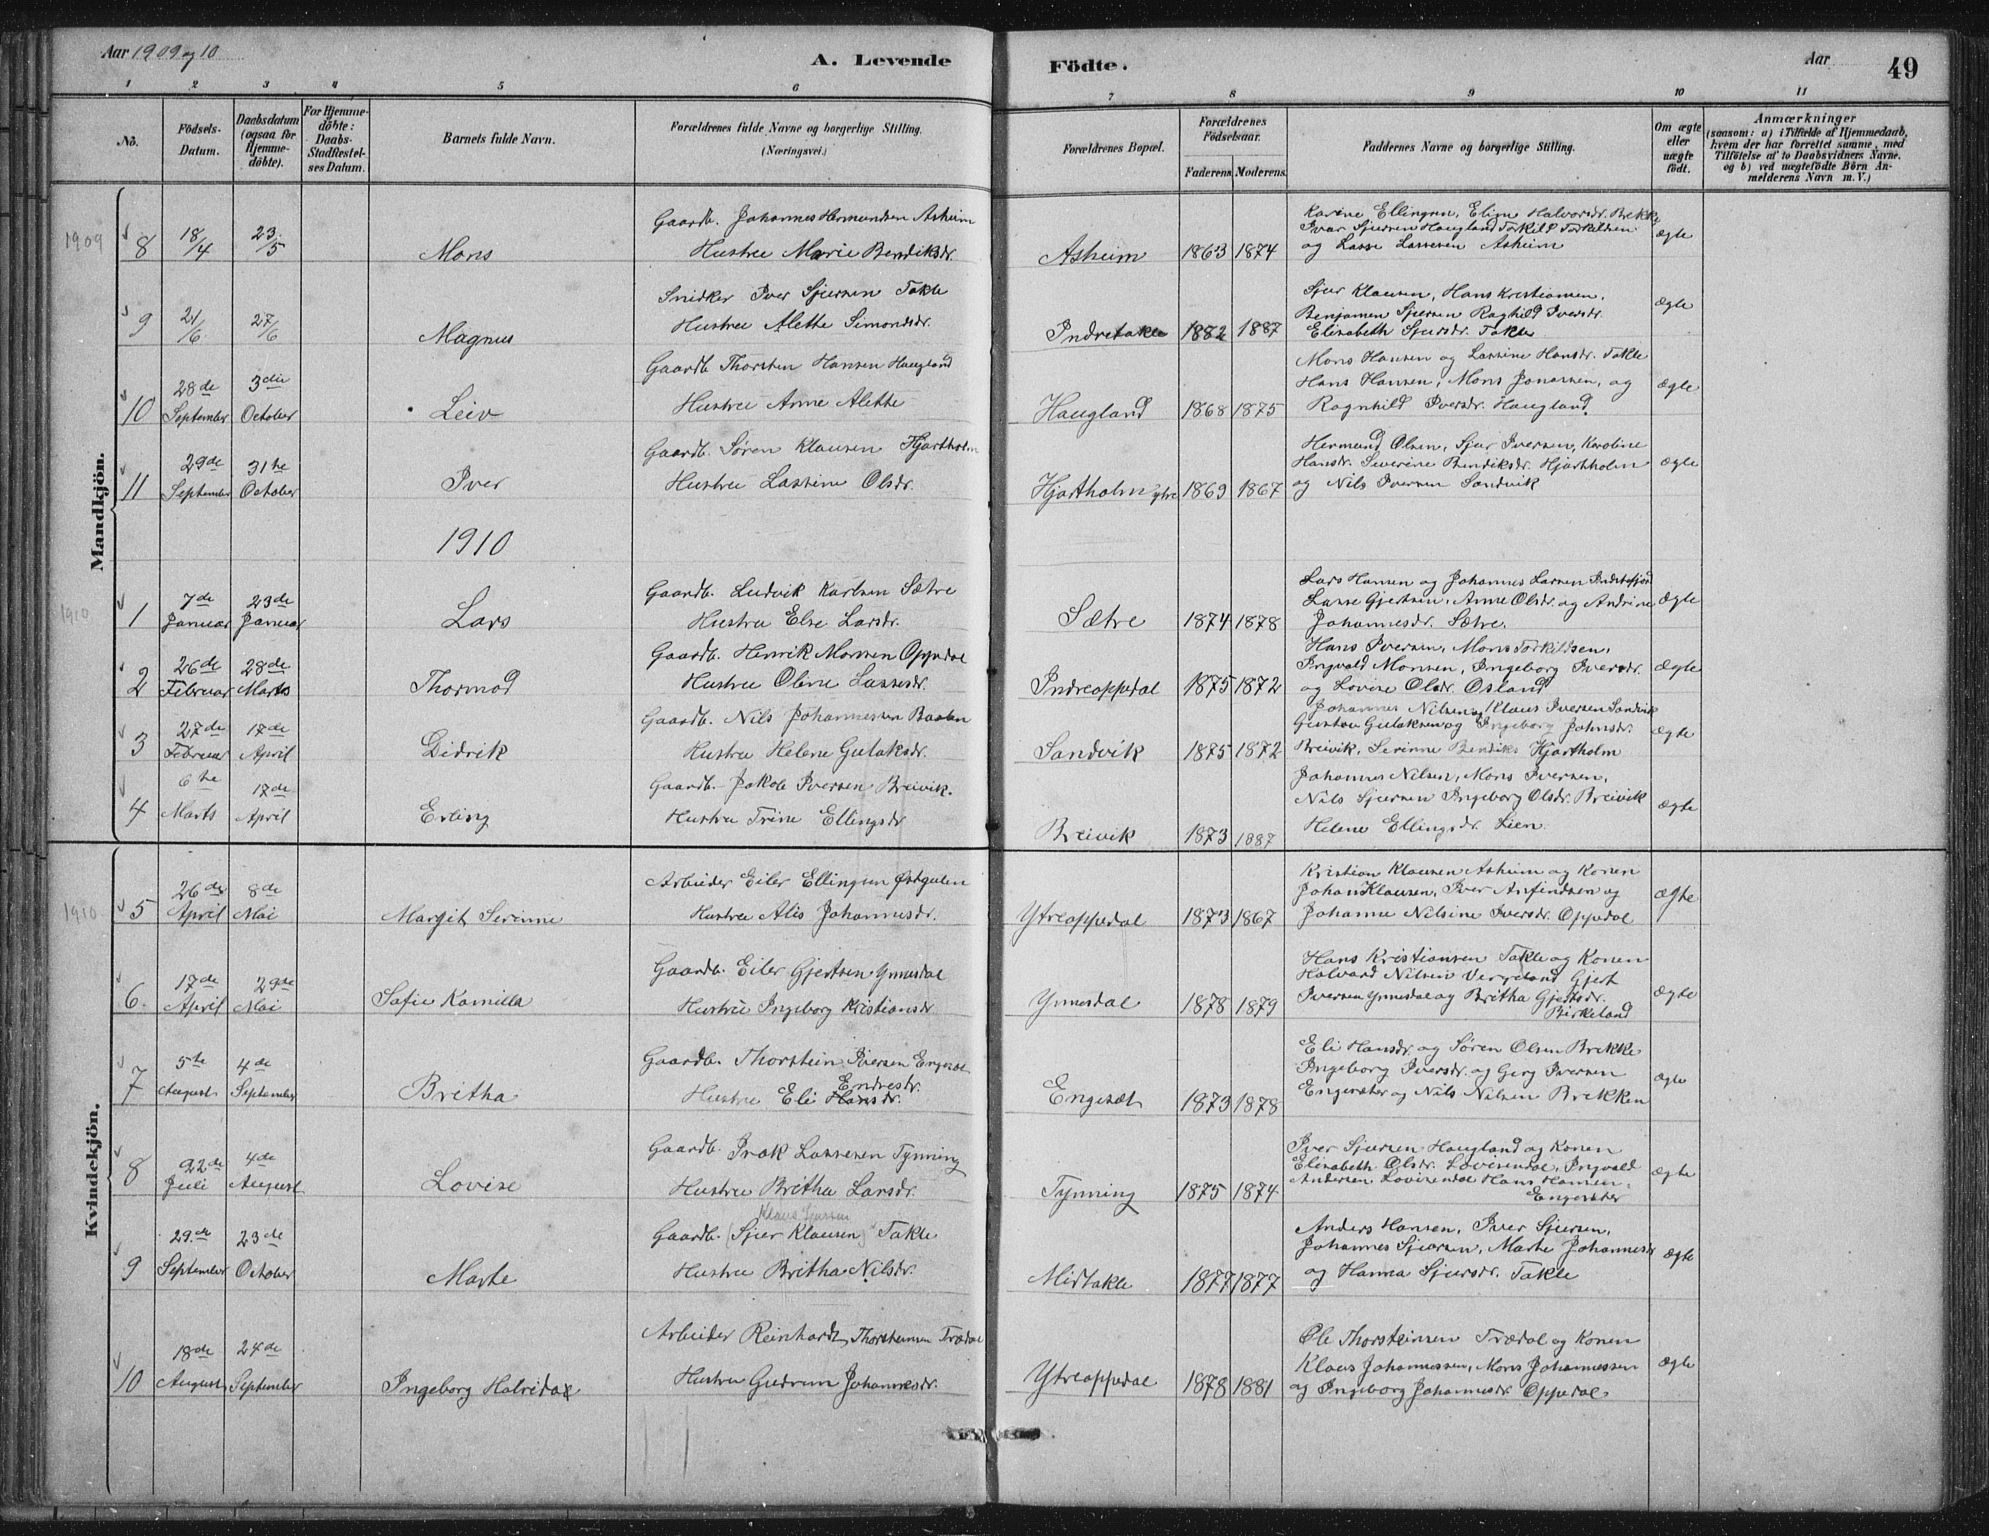 Aar 1909 og 10
A. Levende
Födte.
Aar
49
1 2 3 4 5 6 7 8 9 10 11
No.
Födsels-Datum.
Daabsdatum (ogsaa for Hjemme-döbte).
For Hjemme-döbte: Daabs-Stadfæstel-ses Datum.
Barnets fulde Navn.
Forældrenes fulde Navne og borgerlige Stilling.
(Næringsvei.)
Forældrenes Bopæl.
Forældrenes Födselsaar.
Faderens Moderens
Faddernes Navne og borgerlige Stilling.
Om ægte eller uægte födt.
Anmærkninger
(saasom: a) i Tilfælde af Hjemmedaab,
hvem der har forrettet samme, med
Tilföielse af to Daabsvidners Navne,
og b) ved uægtefödte Börn An-
melderens Navn m. V.)
Mandkjön.
1909
8 18/4 23/5 Mons
Gaardb. Johannes Hermundsen Asheim
Hustru Marie Bendiksdr.
Asheim 1863 1874
Karine Ellingsen, Eline Halvorsdr. Brekke
Ivar Sjursen Haugland Torkild Torkildsen
og Lasse Lassesen Asheim
ægte
9 21/6 27/6 Magnus
Snidker Iver Sjursen Takle
Hustru Alette Simonsdr.
Indretakle 1882 1887
Sjur Klausen, Hans Kristiansen,
Benjamen Sjursen Raghild Iversdr.
Elisabeth Sjursdr. Takle
ægte
10 28de September 3die October Leiv
Gaardb Thorsten Hansen Haugland
Hustru Anne Alette
Haugland 1868 1875
Mons Hansen og Lassine Hansdr. Takle
Hans Hansen, Mons Jonassen, og
Ragnhild Iversdr. Haugland
ægte
11 29de September 31te October Iver
Gaardb. Søren Klausen Hjartholm
Hustru Lassine Olsdr.
Hjartholm ytre 1869 1867
Hermund Olsen, Sjur Iversen, Karoline
Hansdr. Severine Bendiksdr. Hjartholm
og Nils Iversen Sandvik
ægte
1910
1910
1 7de Januar 23de Januar Lars
Gaardb. Ludvik Karlsen Sætre
Hustru Else Larsdr.
Sætre 1874 1878
Lars Hansen og Johannes Larsen Indrefjord
Lasse Gjertsen, Anne Olsdr. og Andrine
Johannesdr. Sætre.
ægte
2 26de Februar 28de Marts Thormod
Gaardb. Henrik Monsen Oppedal
Hustru Oline Lassesdr.
Indreoppedal 1875 1872
Hans Iversen, Mons Torkildsen,
Ingvald Monsen, Ingeborg Iversdr.
og Lovise Olsdr. Osland
ægte
3 27de Februar 17de April Didrik
Gaardb. Nils Johannessen
Hustru Helene Gulaksdr.
Sandvik 1875 1872
Johannes Nilsen, Klaus Iversen Sandvik
Gustav Gulaksen og Ingeborg Johnsdr.
Breivik, Serinne Bendiks Hjartholm
ægte
4 6te Marts 17de April Erling
Gaardb. Jakob Iversen Breivik.
Hustru Trine Ellingsdr
Breivik 1873 1887
Johannes Nilsen, Mons Iversen,
Nils Sjursen Ingeborg Olsdr. Breivik
Helene Ellingsdr. Lien
ægte
Kvindekjön.
1910
5 26de April 8de Mai Margit Serinne
Arbeider Eiler Ellingsen Østgulen
Hustru Alis Johannesdr.
Ytreoppedal 1873 1867
Kristian Klausen Asheim og Konen
Johan Klausen, Iver Anfindsen og
Johanne Nilsine Iversdr. Oppedal
ægte
6. 17de April 29de Mai Sofie Kamilla
Gaardb. Eiler Gjertsen Ynnesdal
Hustru Ingeborg Kristiansdr
Ynnesdal 1878 1879
Hans Kristiansen Takle og Konen
Halvard Nilsen Vergeland Gjert
Iversen Ynnesdal og Britha Gjertsdr.
Birkeland
ægte
7 5te August 4de September Britha
Gaardb. Thorstein Iversen Engesæt
Endresdr.
Hustru Eli Hansdr.
Engesæt 1873 1878
Eli Hansdr. og Søren Olsen Brekke
Ingeborg Iversdr. og Gerg Iversen
Engesæter og Nils Nilsen Brekken
ægte
8 22de Juli 4de August Lovise
Gaardb. Isak Lassesen Tynning
Hustru Britha Larsdr.
Tynning 1875 1874
Iver Sjursen Haugland og Konen
Elisabeth Olsdr. Lovisendal, Ingvald
Andersen Lovisendal Hans Hansen
Engesæter
ægte
9 29de September 23de October Marte
Klaus Sjursen
Gaardb. (Sjur Klausen) Takle
Hustru Britha Nilsdr.
Midtakle 1877 1877
Anders Hansen, Iver Sjursen,
Johannes Sjursen, Marte Johannesdr
og Hanna Sjursdr. Takle
ægte
10 18de August 24de September Ingeborg Halrida
Arbeider Reinhardt Thorsteinsen Trædal
Hustru Gudrun Johannesdr.
Ytreoppedal 1878 1881
Ole Thorsteinsen Trædal og Konen
Klaus Johannessen, Mons Johannessen
og Ingeborg Johannesdr Oppedal.
ægte